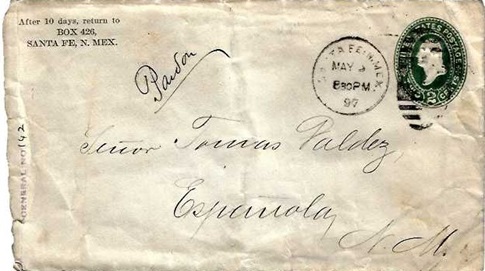 After 10 days, return to
BOX 426,
SANTA FE, N. MEX.
Pardon
SANTA FE, N. MEX.
MAY
830PM
97
UNITED STATES POSTAGE
2
GENERAL NO 142
Señor Tomas Valdez,
Española,
N. M.